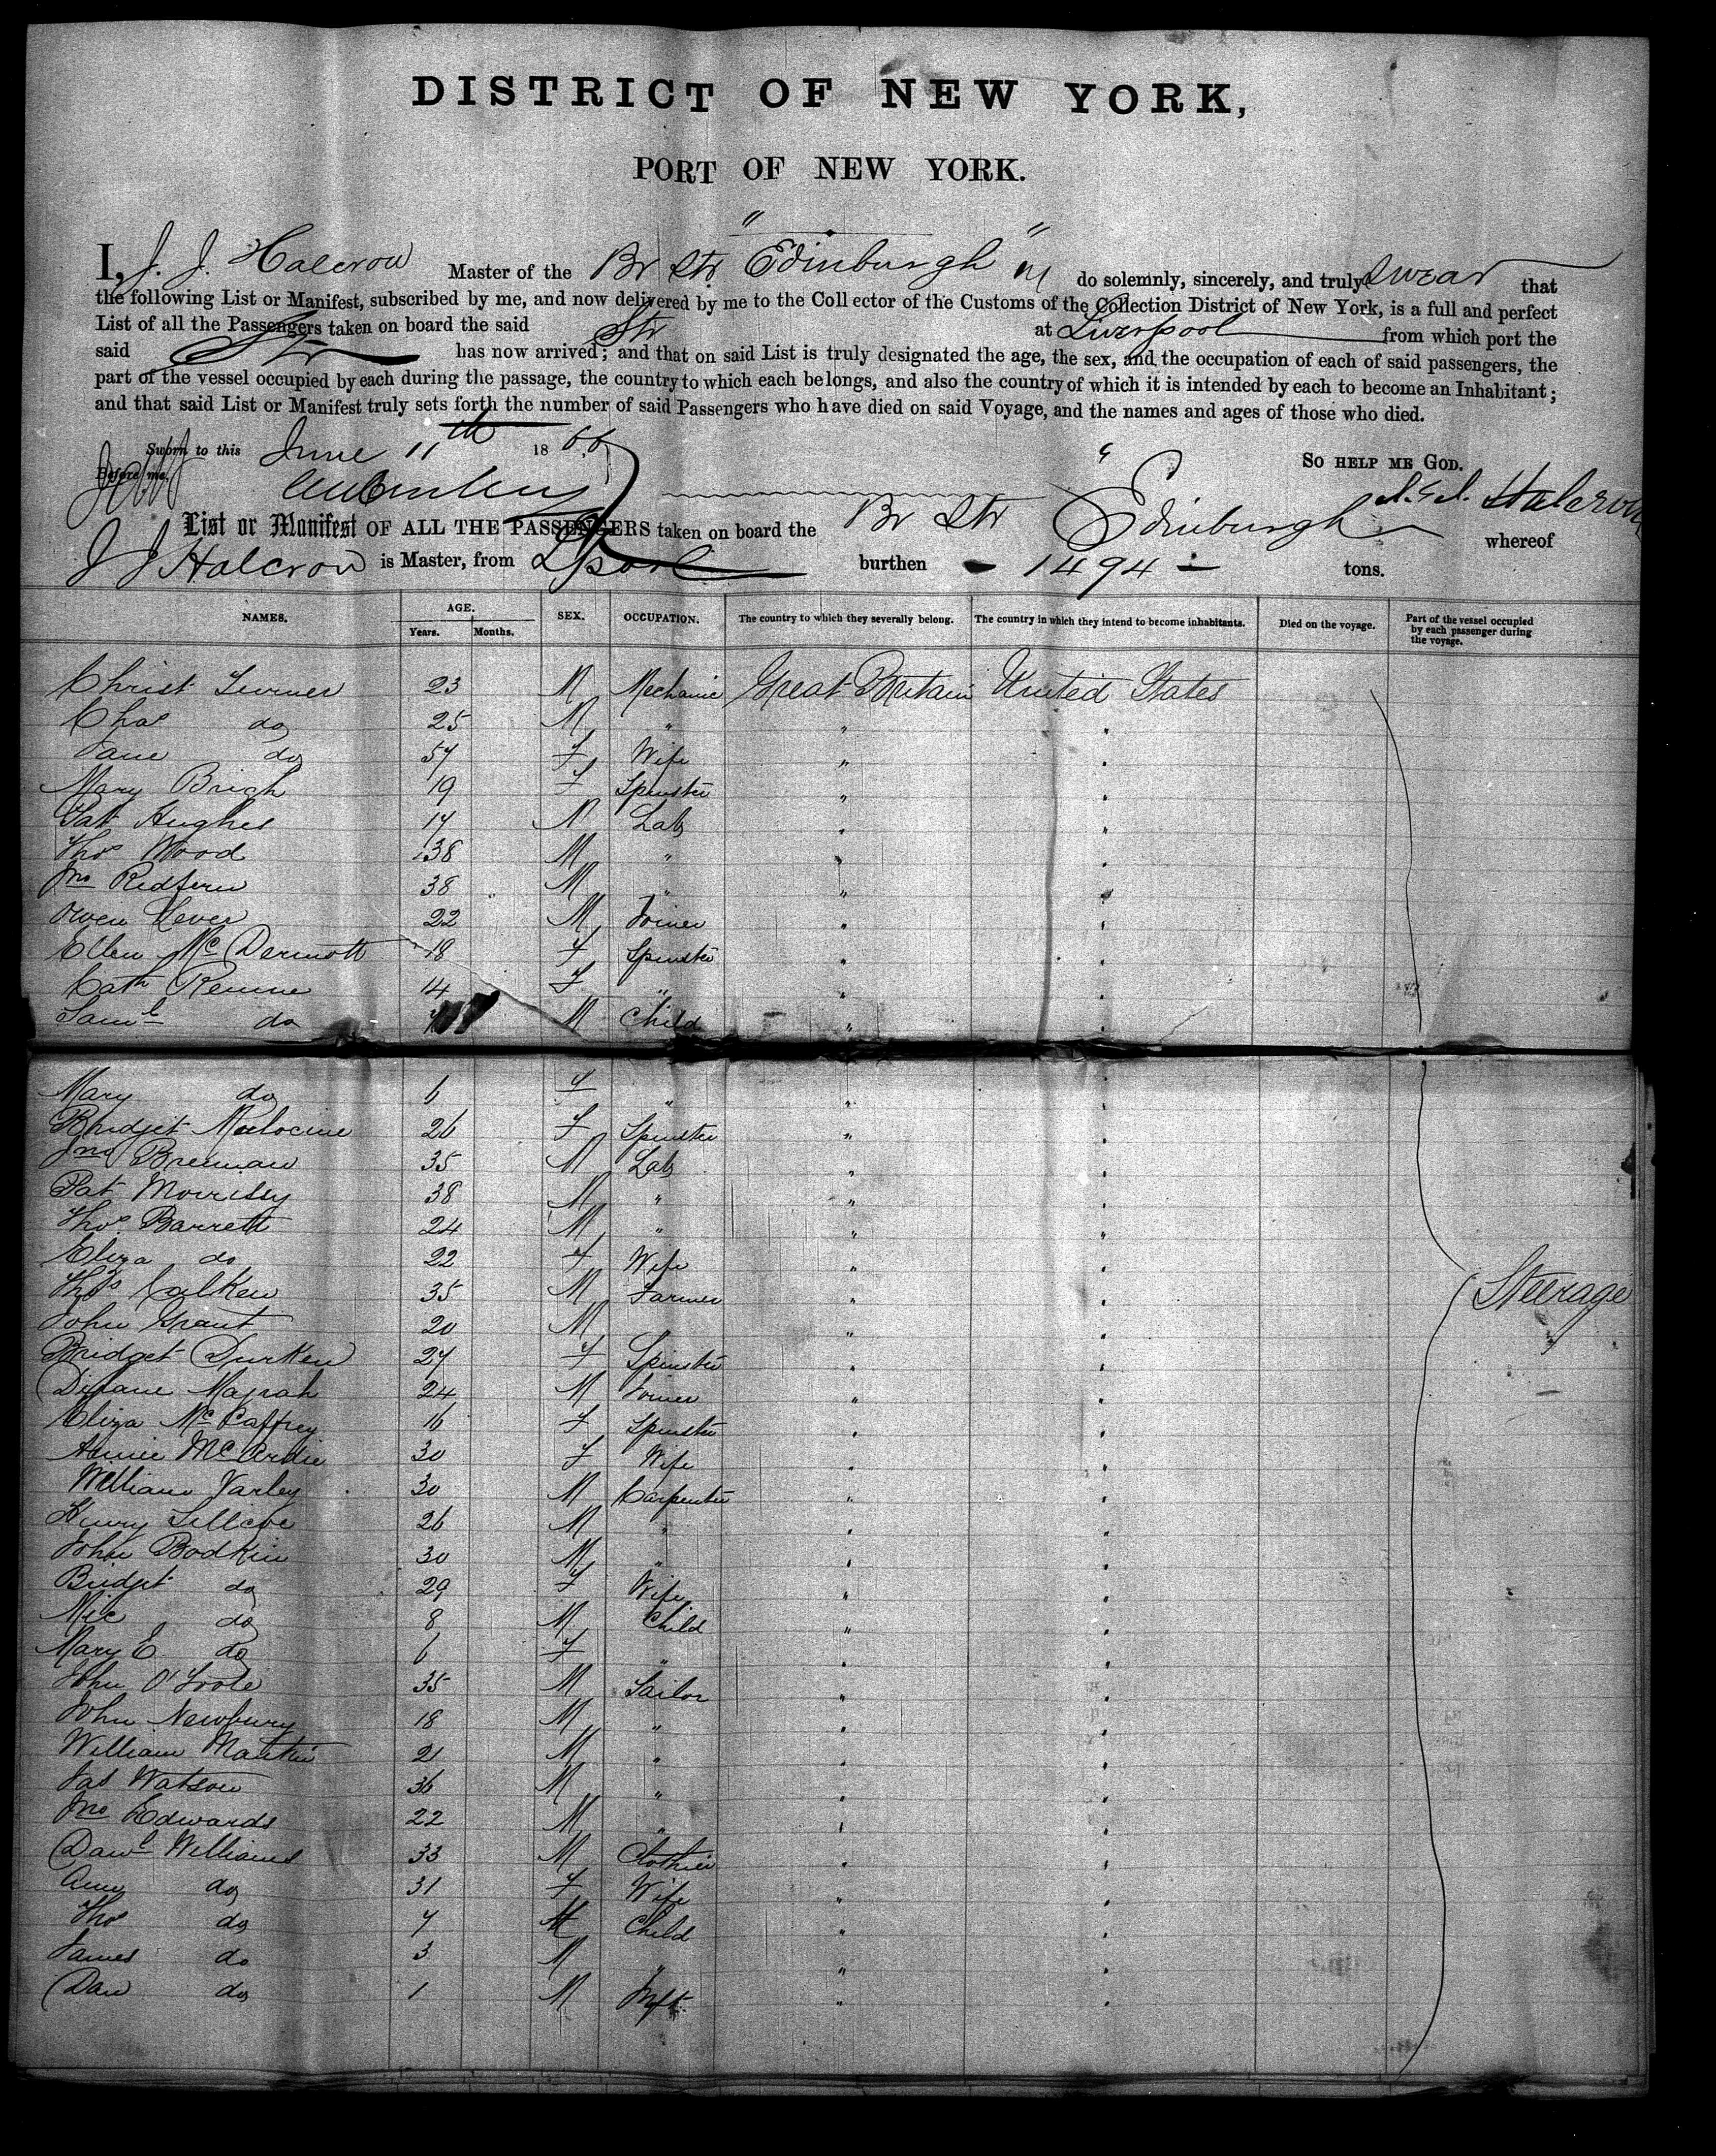 DISTRICT OF NEW YORK,
PORT OF NEW YORK.
I, J. J. Halcrow Master of the Br Str "Edinburgh" do solemnly, sincerely, and truly swear that
the following List or Manifest, subscribed by me, and now delivered by me to the Collector of the Customs of the Collection District of New York, is a full and perfect
List of all the Passengers taken on board the said Str at Liverpool from which port the
said Str has now arrived; and that on said List is truly designated the age, the sex, and the occupation of each of said passengers, the
part of the vessel occupied by each during the passage, the country to which each belongs, and also the country of which it is intended by each to become an Inhabitant;
and that said List or Manifest truly sets forth the number of said Passengers who have died on said Voyage, and the names and ages of those who died.
Sworn to this June 11th 1866 So help me God.
Before me. J. J. Halcrow
List or Manifest OF ALL THE PASSENGERS taken on board the Br Str Edinburgh whereof
J J Halcrow is Master, from Lpool burthen 1494 tons.
NAMES. AGE. Years. Months. SEX. OCCUPATION. The country to which they severally belong. The country in which they intend to become inhabitants. Died on the voyage. Part of the vessel occupied by each passenger during the voyage.
Christ 23 M Mechanic Great Britain United States
Chas do 25 M " " "
Jane do 57 F Wife " "
Mary Brigh 19 F Spinster " "
Pat Hughes 17 M Lab " "
Thos Wood 38 M " " "
Jno Redfern 38 M " " "
Owen Lever 22 M Joiner " "
Ellen McDermott 18 F Spinster " "
Cath 14 F " " "
Saml do M Child " "
Mary do 6 F " " "
Bridget 26 F Spinster " "
Jno Brennan 35 M Lab " "
Pat Morrisey 38 M " " "
Thos Barrett 24 M " " "
Eliza do 22 F Wife " "
Thos Calken 35 M Farmer " "
John Grant 20 M " "
Bridget Durken 27 F Spinster " "
Magrah 24 M Joiner " "
Eliza McCaffrey 16 F Spinster " "
Annie McArdie 30 F Wife " "
William Varley 30 M Carpenter " "
Henry 26 M " " "
John Bodkin 30 M " " "
Bridget do 29 F Wife " "
Mic do 8 M Child " "
Mary E do 6 F " " "
John O'Toole 35 M Sailor " "
John Newbury 18 M " " "
William Mantin 21 M " " "
Jas Watson 36 M " " "
Jno Edwards 22 M " " "
Danl Williams 33 M Clothier " "
Ann do 31 F Wife " "
Thos do 7 M Child " "
James do 3 M " " "
Dan do 1 M Inft " "
Steerage